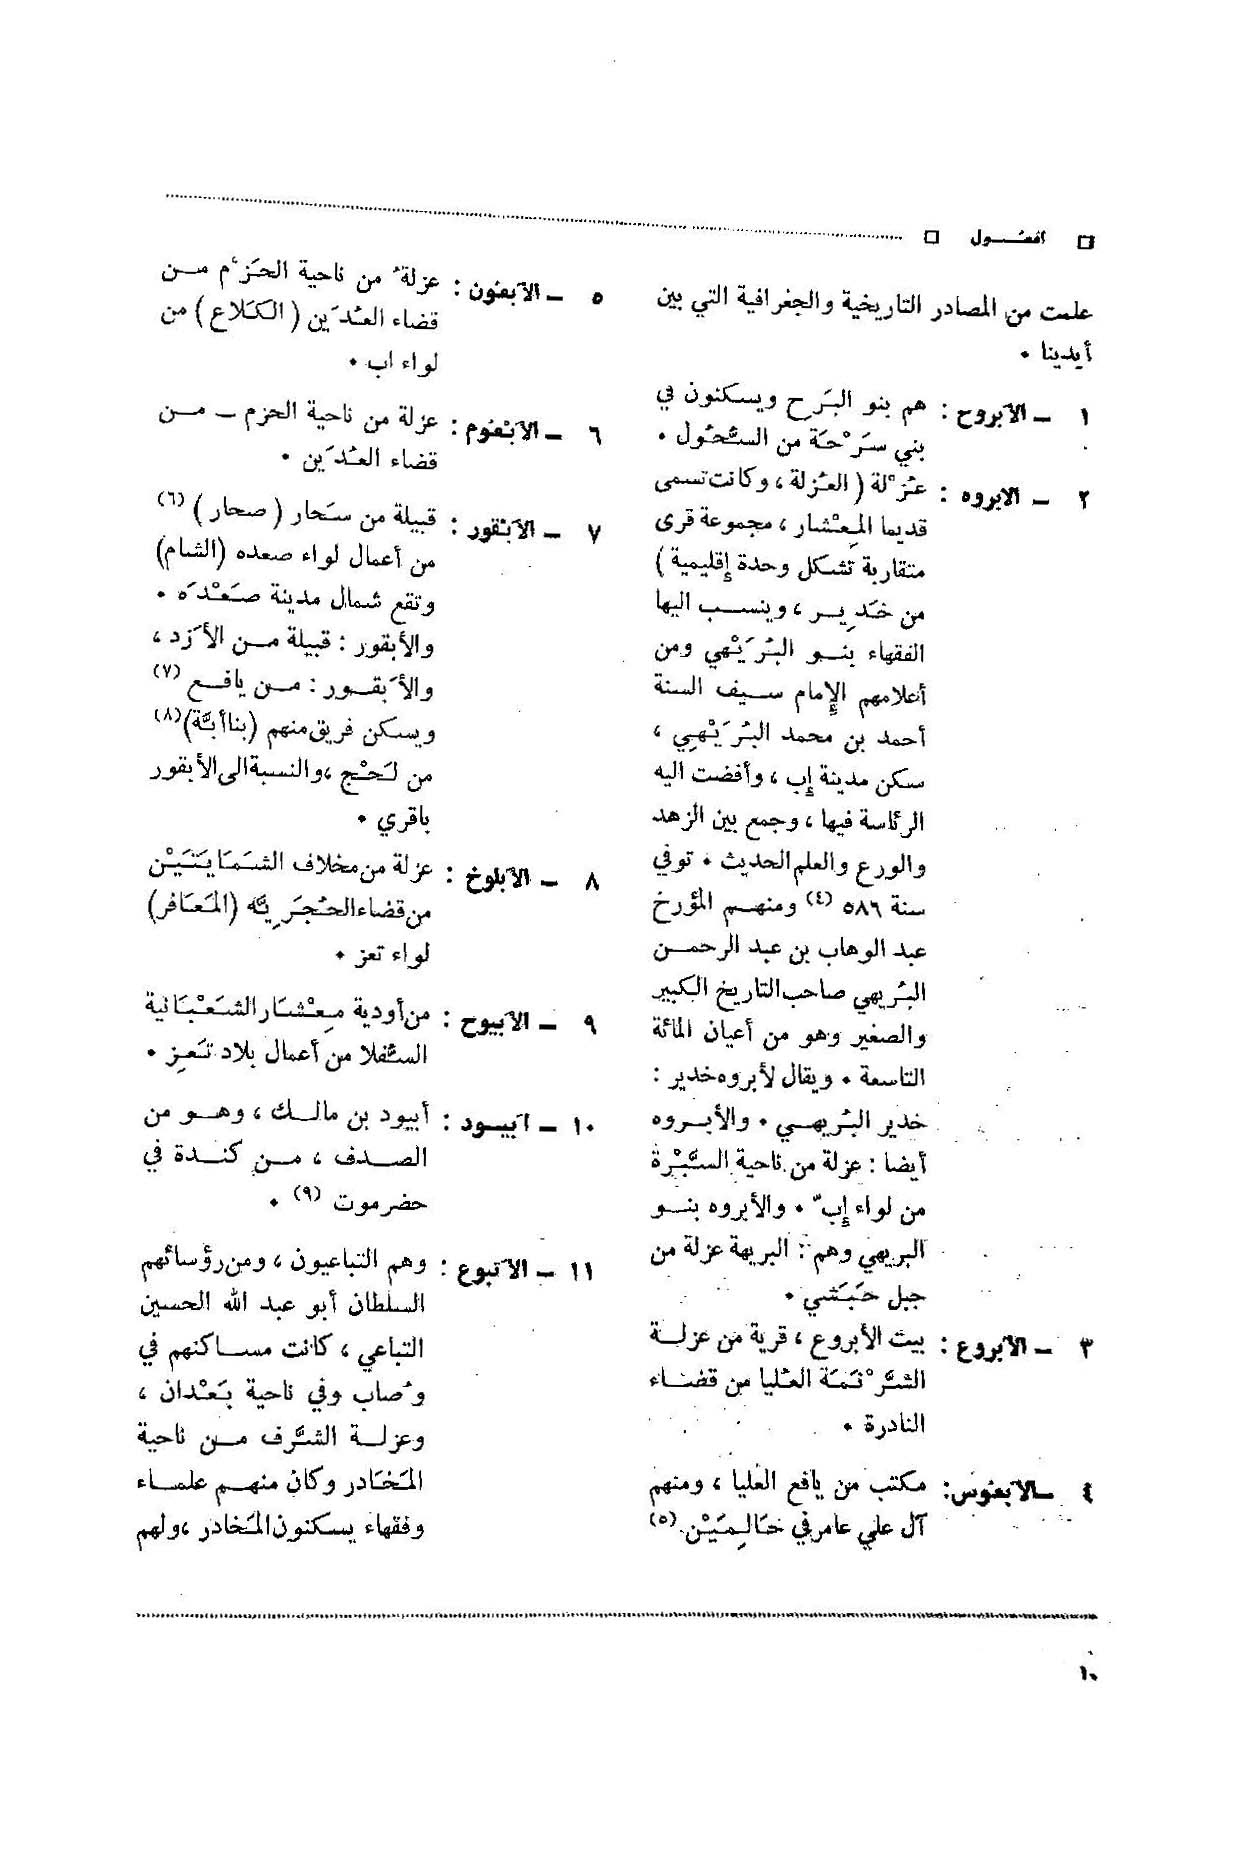 □ افعُـول □
علمت من المصادر التاريخية والجغرافية التي بين
أيدينا ٠
١ – الأبروح : هم بنو البَرح ويسكنون في
بني سَرْحَة من السَّحُول ٠
٢ – الابروه : عُزْلة ( العُزلة ، وكانت تسمى
قديما المِعْشار ، مجموعة قرى
متقاربة تشكل وحدة إقليمية )
من خَدِير ، وينسب اليها
الفقهاء بنو البُرَيْهي ومن
أعلامهم الإمام سيف السنة
أحمد بن محمد البُرَيْهي ،
سكن مدينة إب ، وأفضت اليه
الرئاسة فيها ، وجمع بين الزهد
والورع والعلم الحديث ٠ توفي
سنة ٥٨٦ (٤) ومنهم المؤرخ
عبد الوهاب بن عبد الرحمن
البُريهي صاحب التاريخ الكبير
والصغير وهو من أعيان المائة
التاسعة ٠ ويقال لأبروه خدير :
خدير البُريهي ٠ والأبروه
أيضا : عزلة من ناحية السَّبْرة
من لواء إبّ ٠ والأبروه بنو
البريهي وهم : البريهة عزلة من
جبل حَبَشي ٠
٣ – الأبروع : بيت الأبروع ، قرية من عزلة
الشَّرْنَمَة العُليا من قضاء
النادرة ٠
٤ – الأبعوس : مكتب من يافع العُليا ، ومنهم
آل علي عامر في حَالِمَيْن (٥)
٥ – الأبعون : عزلةُ من ناحية الحَزْم من
قضاء العُدَين ( الكَلاع ) من
لواء اب ٠
٦ – الأبْعوم : عزلة من ناحية الحزم – من
قضاء العُدَين ٠
٧ – الأبْقور : قبيلة من سَحار ( صحار ) (٦)
من أعمال لواء صعده (الشام)
وتقع شمال مدينة صَعْدَه ٠
والأبقور : قبيلة من الأَزد ،
والأَبقور : من يافع (٧)
ويسكن فريق منهم (بنا أبَّة)(٨)
من لَحْج ، والنسبة الى الأبقور
باقري ٠
٨ – الأبلوخ : عزلة من مخلاف الشَمَايَتَيْن
من قضاء الحُجَرِيَّه (المَعَافر)
لواء تعز ٠
٩ – الأبيوح : من أودية مِعْشَار الشَعْبَانية
السُفلا من أعمال بلاد تَعِز ٠
١٠ – ابيود : أبيود بن مالك ، وهو من
الصدف ، من كندة في
حضرموت (٩) ٠
١١ – الأتبوع : وهم التباعيون ، ومن رؤسائهم
السلطان أبو عبد الله الحسين
التباعي ، كانت مساكنهم في
وُصاب وفي ناحية بَعْدان ،
وعزلة الشَّرف من ناحية
المَخَادر وكان منهم علماء
وفقهاء يسكنون المَخادر ، ولهم
١٠